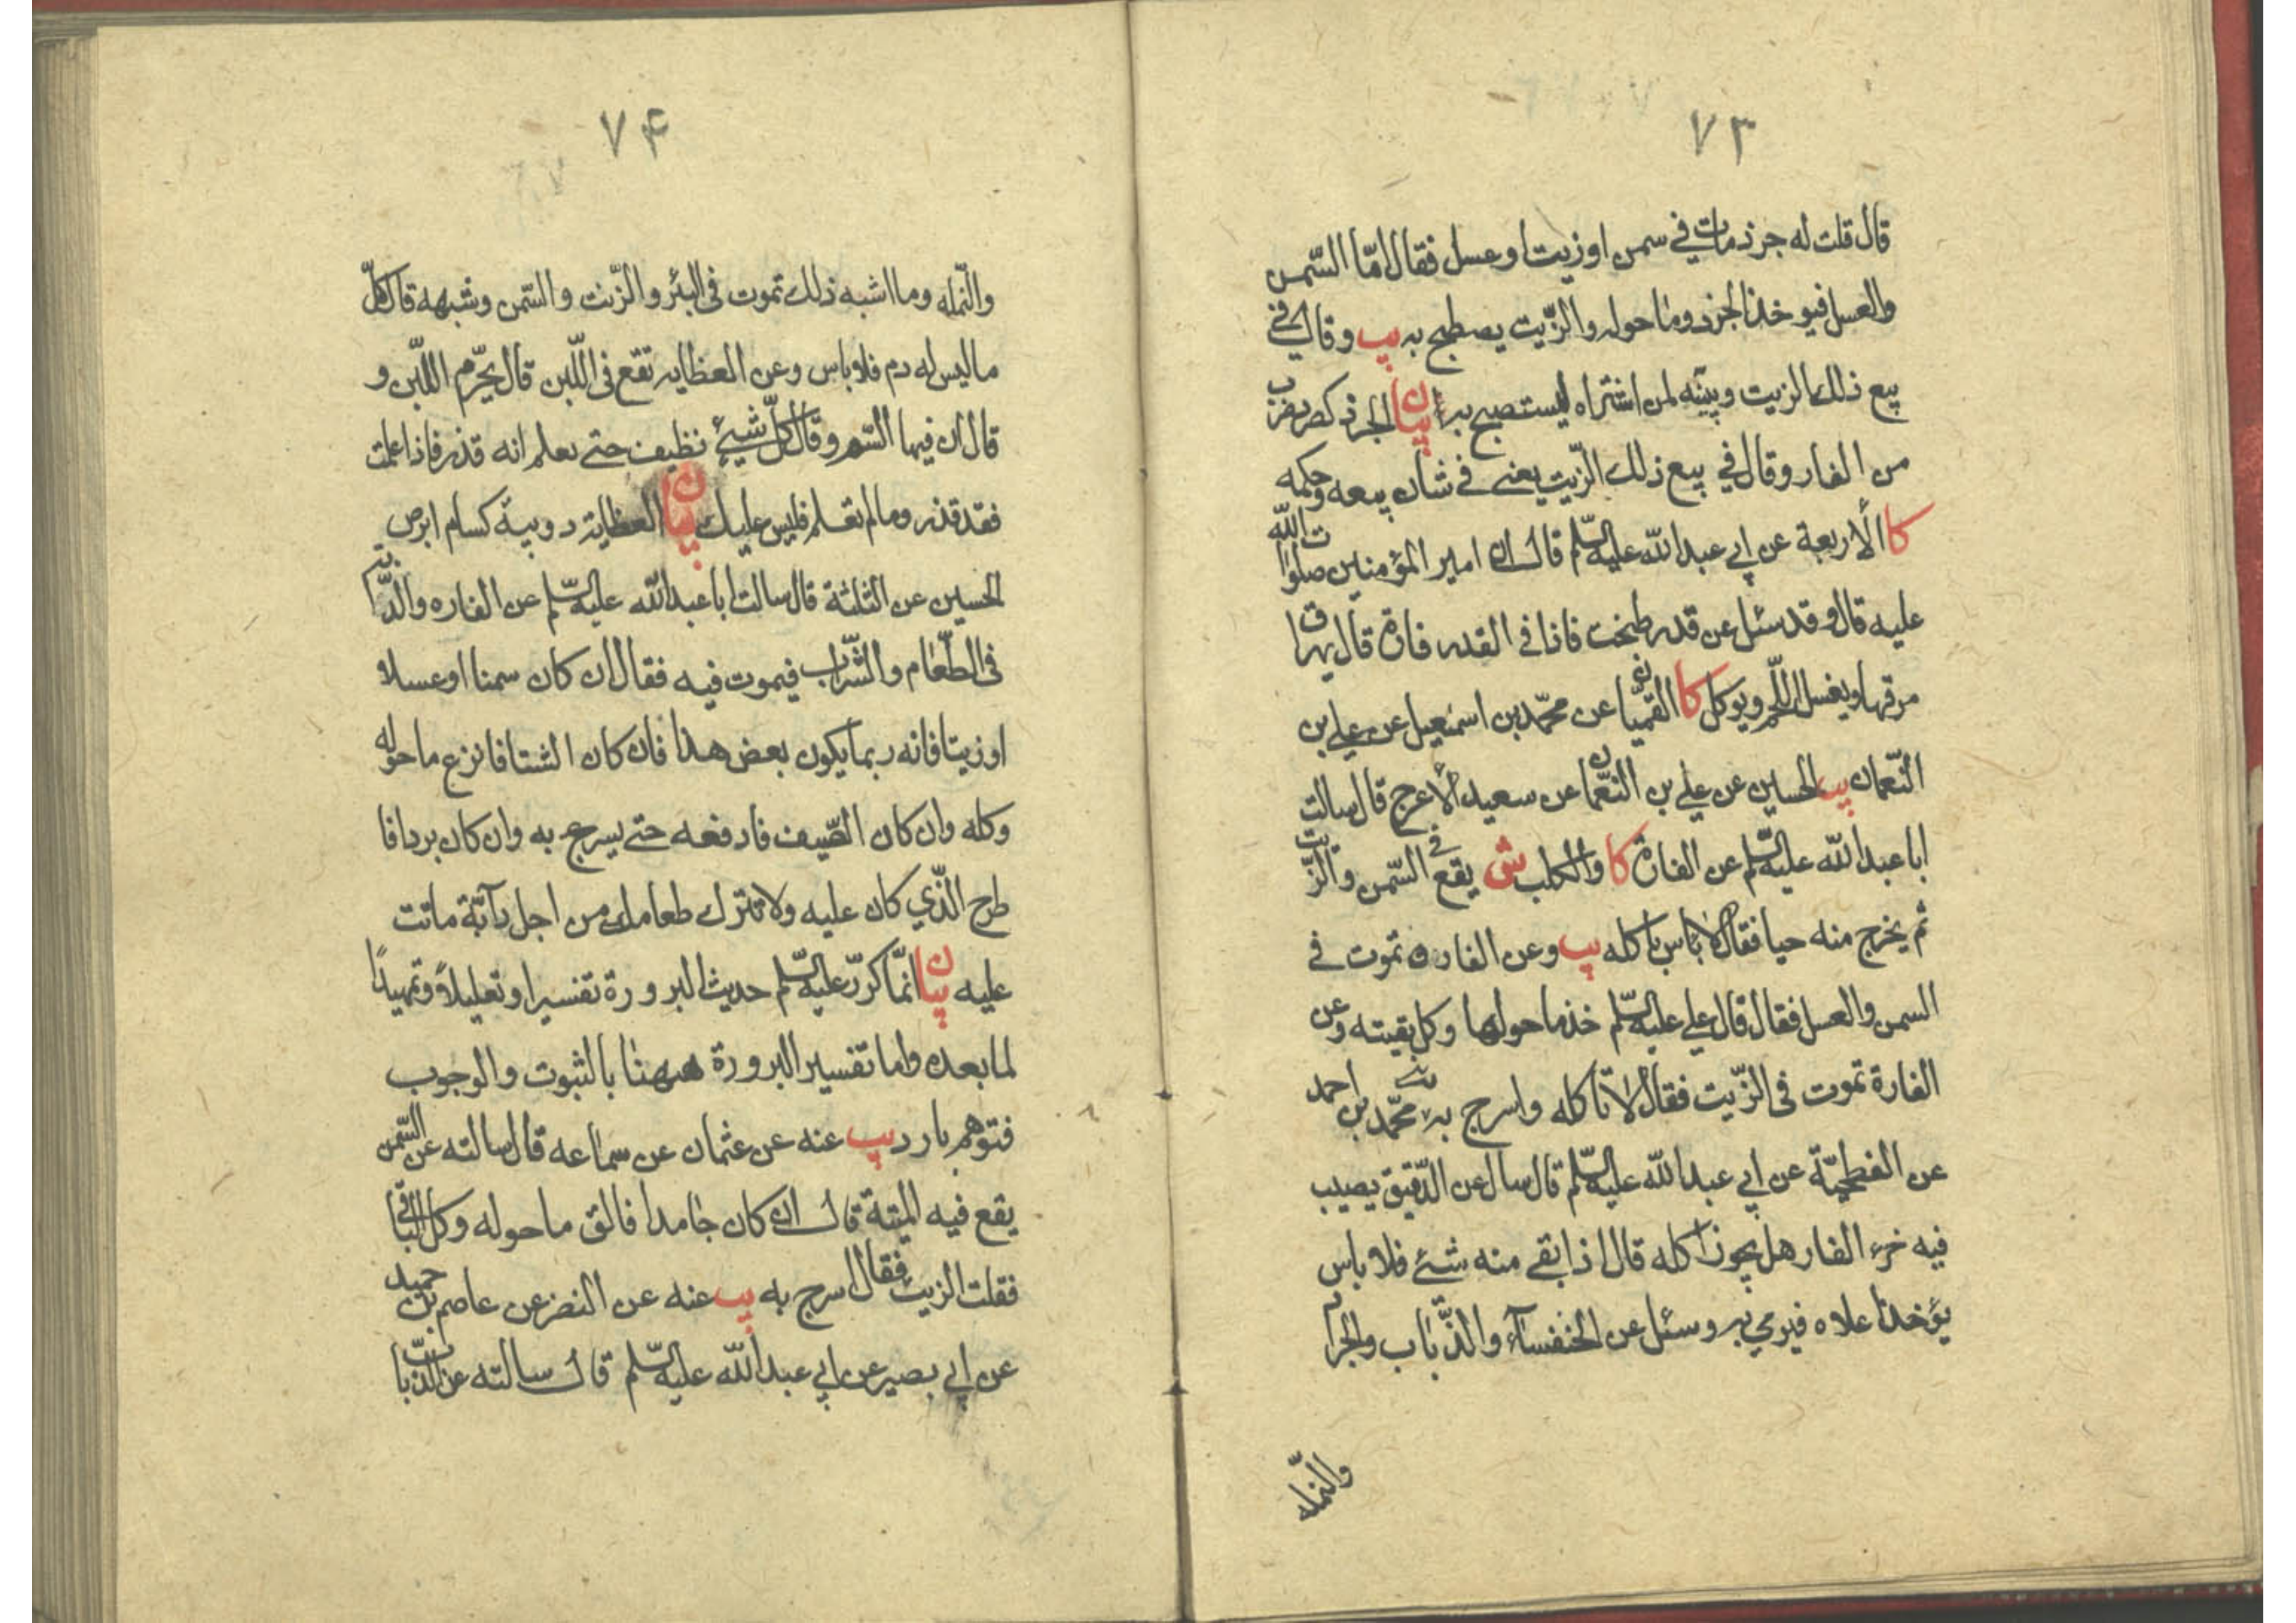 ۷۳
قال قلت له جرذ مات في سمن او زيت او عسل فقال امّا السّمن
والعسل فيوخذ الجرذ وما حوله والزّيت يصطبح به يب وقال في
بيع ذلك الزيت وبيّنه لمن اشتراه ليستصبح به بيان الجرذ كصرد ضرب
من الفار وقال في بيع ذلك الزّيت يعنى في شان بيعه وحكمه
كا الأربعة عن ابي عبد الله عليه السّلم قال ان امير المؤمنين صلوات الله
عليه قال وقد سئل عن قدر طبخت فاذا في القدر فارة قال يهراق
مرقها ويغسل اللّحم ويوكل كا القميان عن محمّد بن اسمعيل عن علي بن
النّعمان يب الحسين عن علي بن النّعمان عن سعيد الأعرج قال سالت
ابا عبد الله عليه السّلم عن الفارة كا والكلب ش يقع في السّمن والزّيت
ثم يخرج منه حيا فقال لا باس باكله يب وعن الفاره تموت في
السمن والعسل فقال قال علي عليه السّلم خذ ما حولها وكل بقيته وعن
الفارة تموت في الزّيت فقال لا تاكله واسرج به محمّد بن احمد
عن الفطحيّة عن ابي عبد الله عليه السّلم قال سال عن الدّقيق يصيب
فيه خرء الفار هل يجوز اكله قال اذا بقي منه شئ فلا باس
يؤخذ اعلاه فيرمي به وسئل عن الخنفسآء والذّباب والجراد
والنّمله
۷۴
والنّمله وما اشبه ذلك تموت في البئر والزّيت والسّمن وشبهه قال كلّ
ما ليس له دم فلا باس وعن العظايه تقع في اللّبن قال يحرّم اللّبن و
قال ان فيها السّم وقال كلّ شيئ نظيف حتى تعلم انه قذر فاذا علمت
فقد قذر وما لم تعلم فليس عليك بيان العظاية دويبة كسام ابرص
الحسين عن الثلثة قال سالت ابا عبد الله عليه السّلم عن الفاره والدّابة
في الطّعام والشّراب فيموت فيه فقال ان كان سمنا او عسلا
او زيتا فانه ربما يكون بعض هذا فان كان الشتا فانزع ما حوله
وكله وان كان الصّيف فادفعه حتى يسرج به وان كان بردا فا
طرح الّذي كان عليه ولا تترك طعامك من اجل دآبّة ماتت
عليه بيان انّما كرّر عليه السّلم حديث البرورة تفسيرا وتعليلاً وتمهيداً
لما بعده واما تفسير البرورة ههنا بالثبوت والوجوب
فتوهم بارد يب عنه عن عثمان عن سماعه قال سالته عن السّمن
يقع فيه الميتة قال ان كان جامدا فالق ما حوله وكل الباقي
فقلت الزيت فقال اسرج به يب عنه عن النضر عن عاصم بن حميد
عن ابي بصير عن ابي عبد الله عليه السّلم قال سالته عن الذّباب